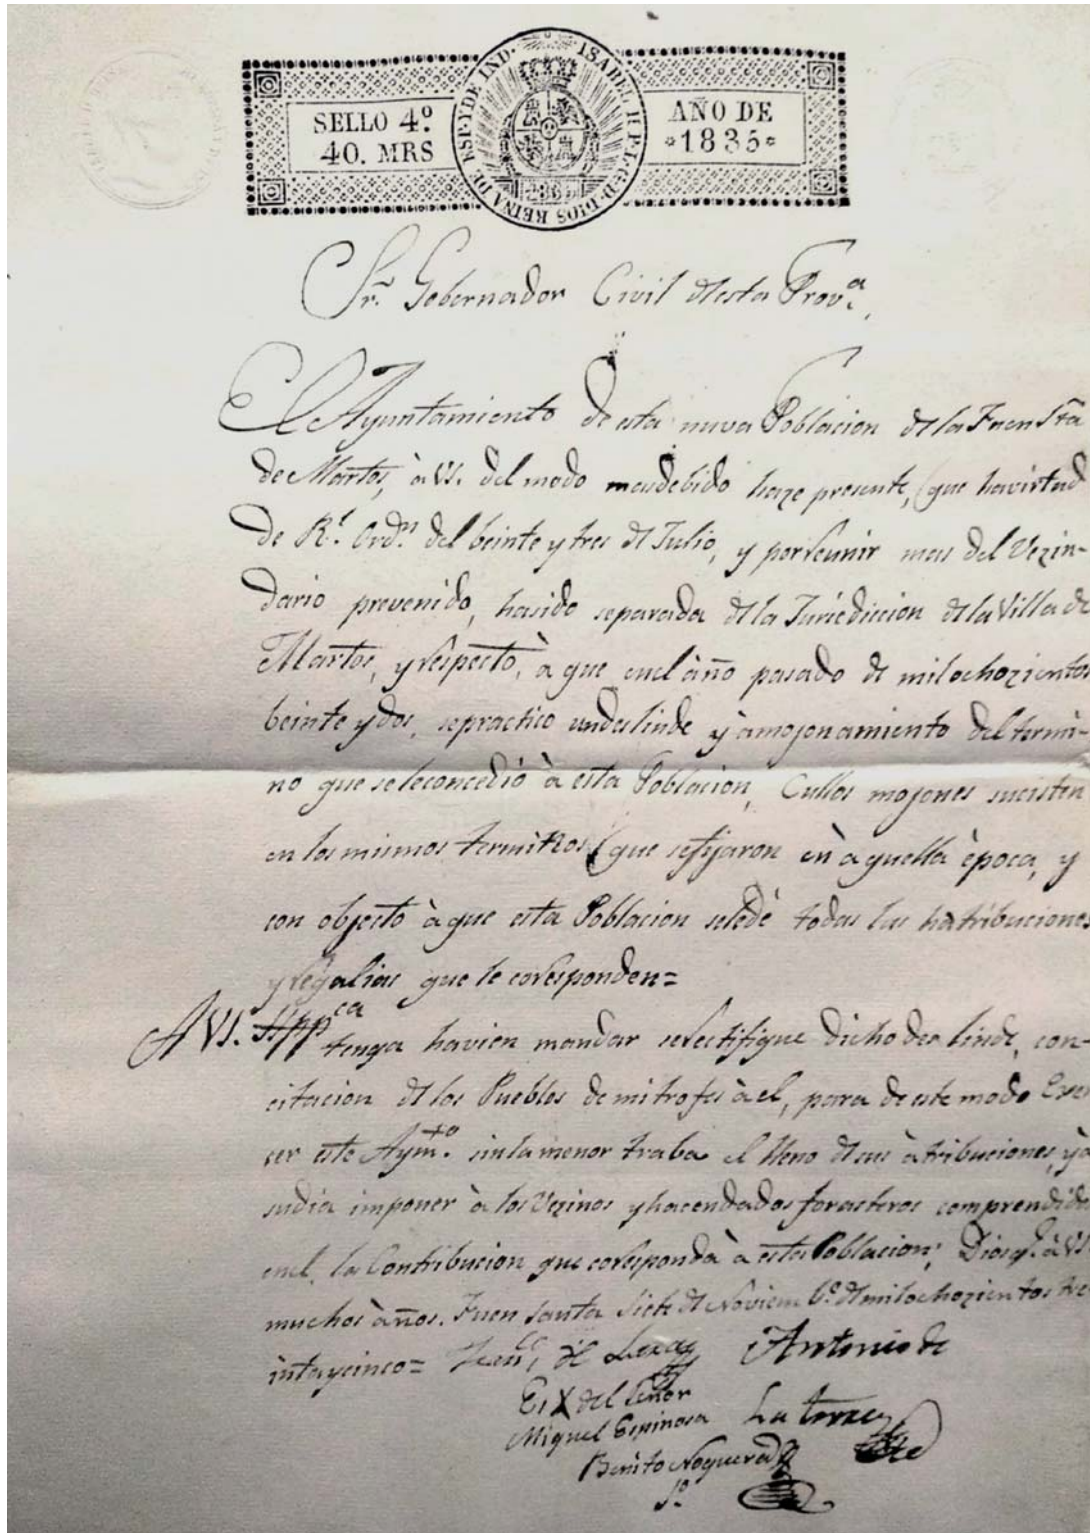 SELLO 4º
40. MRS
ISABEL II. P. L. G. D. DIOS REINA DE ESP. Y DE IND.
AÑO DE
1835
Sr. Gobernador Civil desta Provª.
El Ayuntamiento de esta nueva Poblacion de la Fuen Sta
de Martos, à VS. del modo masdebido haze presente, que havirtud
de Rl. Ordn. del beinte y tres de Julio, y por reunir mas del Vezin-
dario prevenido, hasido separada de la Juridiccion de la Villa de
Martos, y respecto, à que enel año pasado de milochozientos
beinte y dos, sepractico undeslinde y amojonamiento del termi-
no que seleconcedió à esta Poblacion, Cullos mojones sucisten
en los mismos terminos que sefijaron en àquella època, y
con objecto àque esta Poblacion seledè todas las hatribuciones
y regalias que le coresponden=
A VS. Suppca
tenga havien mandar serectifique dicho deslinde, con-
citacion de los Pueblos demitrofes àel, para de este modo Exer
cer este Aymto. sinlamenor traba el lleno desus àtribuciones, yà
sudia imponer à los Vezinos yhacendados forasteros comprendidos
enel, la Contribucion que coresponda à esta Poblacion; Diosge. à VS
muchos àños. Fuen santa Siete de Noviembe. de milochozientos tre
intaycinco= Franco. de Antonio de
Es X del Señor
Miguel Espinosa La torre
Benito Noguera
So.